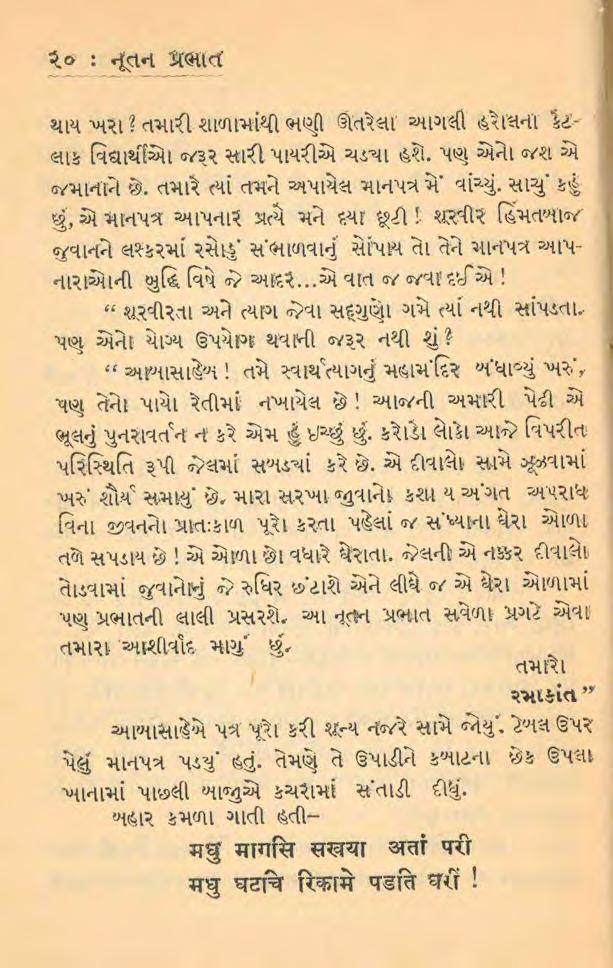 ૨૦ : નૂતન પ્રભાત
થાય ખરા? તમારી શાળામાંથી ભણી ઊતરેલા આગલી હરોલના કેટ-
લાક વિદ્યાર્થીઓ જરૂર સારી પાયરીએ ચડયા હશે. પણ એનો જશ એ
જમાનાને છે. તમારે ત્યાં તમને અપાયેલ માનપત્ર મેં વાંચ્યું. સાચું કહું
છું, એ માનપત્ર આપનાર પ્રત્યે મને દયા છૂટી! શૂરવીર હિંમતબાજ
જુવાનને લશ્કરમાં રસોડું સંભાળવાનું સોંપાય તો તેને માનપત્ર આપ-
નારાઓની બુદ્ધિ વિષે જે આદર...એ વાત જ જવા દઈએ!
“ શૂરવીરતા અને ત્યાગ જેવા સદ્દગુણો ગમે ત્યાં નથી સાંપડતા.
પણ એનો યોગ્ય ઉપયોગ થવાની જરૂર નથી શું?
“ આબાસાહેબ! તમે સ્વાર્થત્યાગનું મહામંદિર બંધાવ્યું ખરું,
પણ તેનો પાયો રેતીમાં નખાયેલ છે! આજની અમારી પેઢી એ
ભૂલનું પુનરાવર્તન ન કરે એમ હું ઇચ્છું છું. કરોડો લોકો આજે વિપરીત
પરિસ્થિતિ રૂપી જેલમાં સબડયાં કરે છે. એ દીવાલો સામે ઝૂઝવામાં
ખરું શૌર્ય સમાયું છે. મારા સરખા જુવાનો કશા ય અંગત અપરાધ
વિના જીવનનો પ્રાતઃકાળ પૂરો કરતા પહેલાં જ સંધ્યાના ઘેરા ઓળા
તળે સપડાય છે! એ ઓળા છો વધારે ઘેરાતા. જેલની એ નક્કર દીવાલો
તોડવામાં જુવાનોનું જે રુધિર છંટાશે એને લીધે જ એ ઘેરા ઓળામાં
પણ પ્રભાતની લાલી પ્રસરશે. આ નૂતન પ્રભાત સવેળા પ્રગટે એવા
તમારા આશીર્વાદ માગું છું.
તમારો
રમાકાંત”
આબાસાહેબે પત્ર પૂરો કરી શૂન્ય નજરે સામે જોયું. ટેબલ ઉપર
પેલું માનપત્ર પડયું હતું. તેમણે તે ઉપાડીને કબાટના છેક ઉપલા
ખાનામાં પાછલી બાજુએ કચરામાં સંતાડી દીધું.
બહાર કમળા ગાતી હતી—
मधु मागसि सखया अतां परी
मधु घटचि रिकामे पडति घरीं !